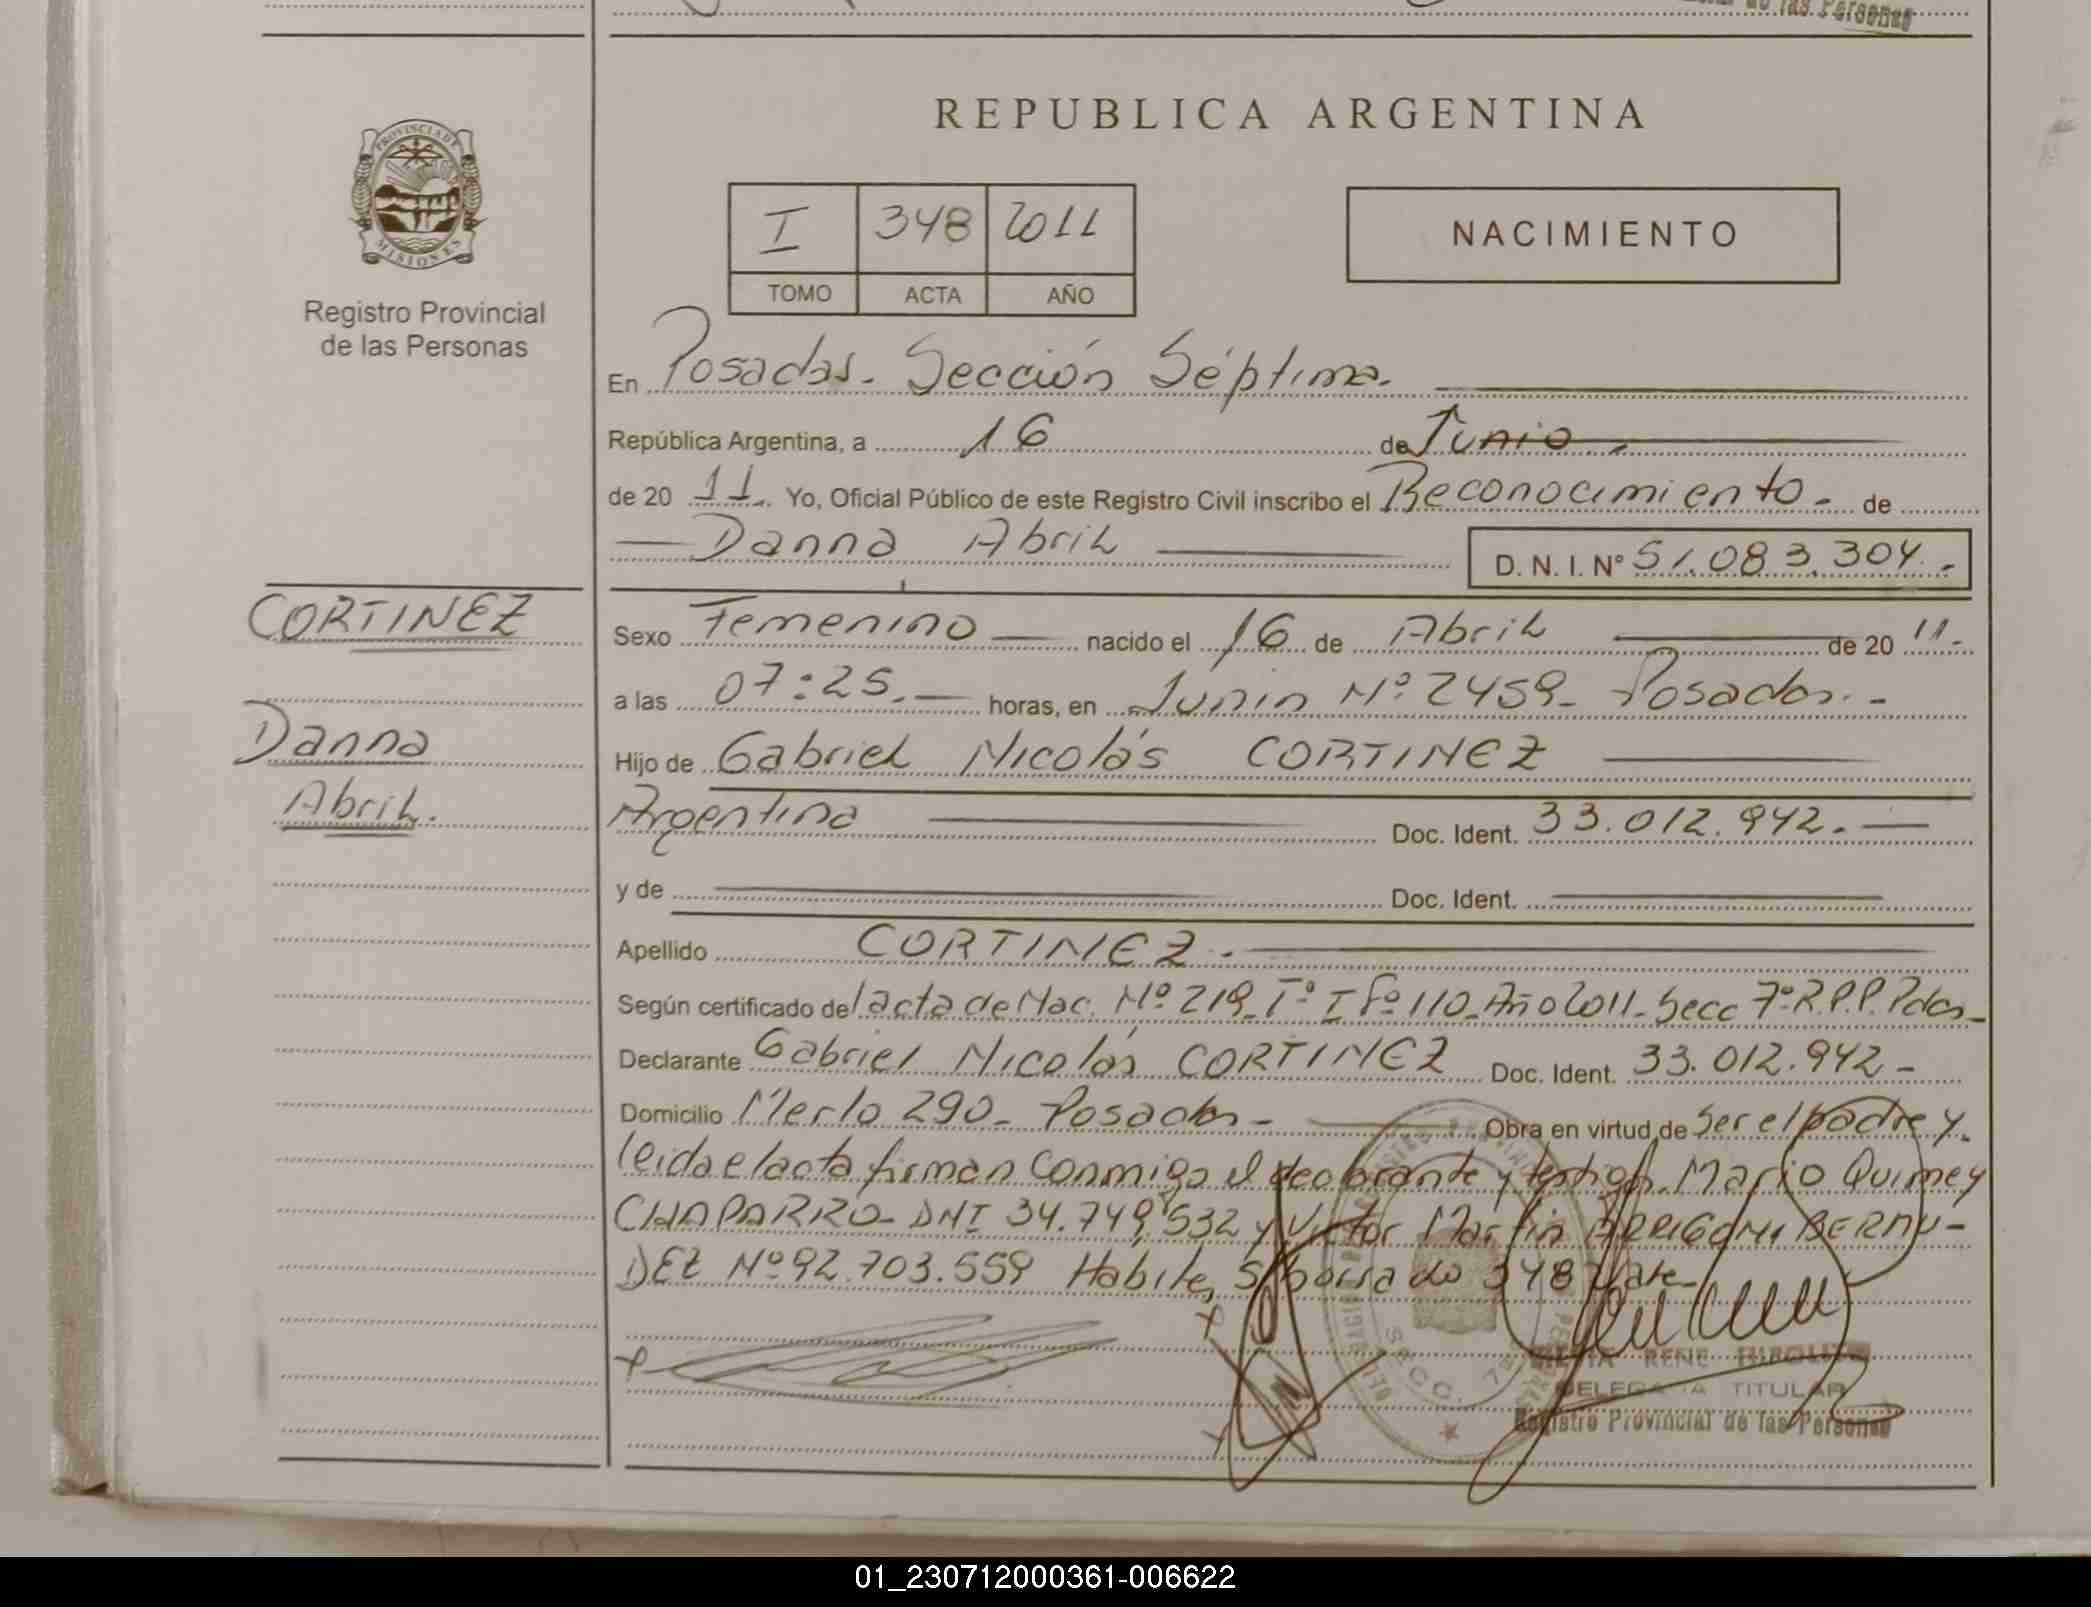 de las Personas
REPUBLICA ARGENTINA
PROVINCIA DE
MISIONES
Registro Provincial
de las Personas
I 348 2011
TOMO ACTA AÑO
NACIMIENTO
En Posadas. Sección Séptima.
República Argentina, a 16 de Junio.
de 20 11. Yo, Oficial Público de este Registro Civil inscribo el Reconocimiento. de
Danna Abril
D. N. I. N° 51.083.304.-
CORTINEZ
Danna
Abril.
Sexo Femenino nacido el 16 de Abril de 20 11.
a las 07:25.- horas, en Junin N° 2459- Posadas.-
Hijo de Gabriel Nicolás CORTINEZ
Argentina Doc. Ident. 33.012.942.-
y de Doc. Ident.
Apellido CORTINEZ.
Según certificado del acta de Nac. N° 219 T° I F° 110 Año 2011. Secc 7° R.P.P. Pdas-
Declarante Gabriel Nicolás CORTINEZ Doc. Ident. 33.012.942-
Domicilio Merlo 290- Posadas- Obra en virtud de Ser el padre y.
leida el acta firman conmigo el declarante y testigos. Mario Quimey
CHAPARRO- DNI 34.749.532 y Victor Martin ARRIGONI BERMU-
DEZ N° 92.703.559 Habite, S/borrado 348 Vale-
SECC. 7ª
RENE
DELEGADA TITULAR
Registro Provincial de las Personas
01_230712000361-006622